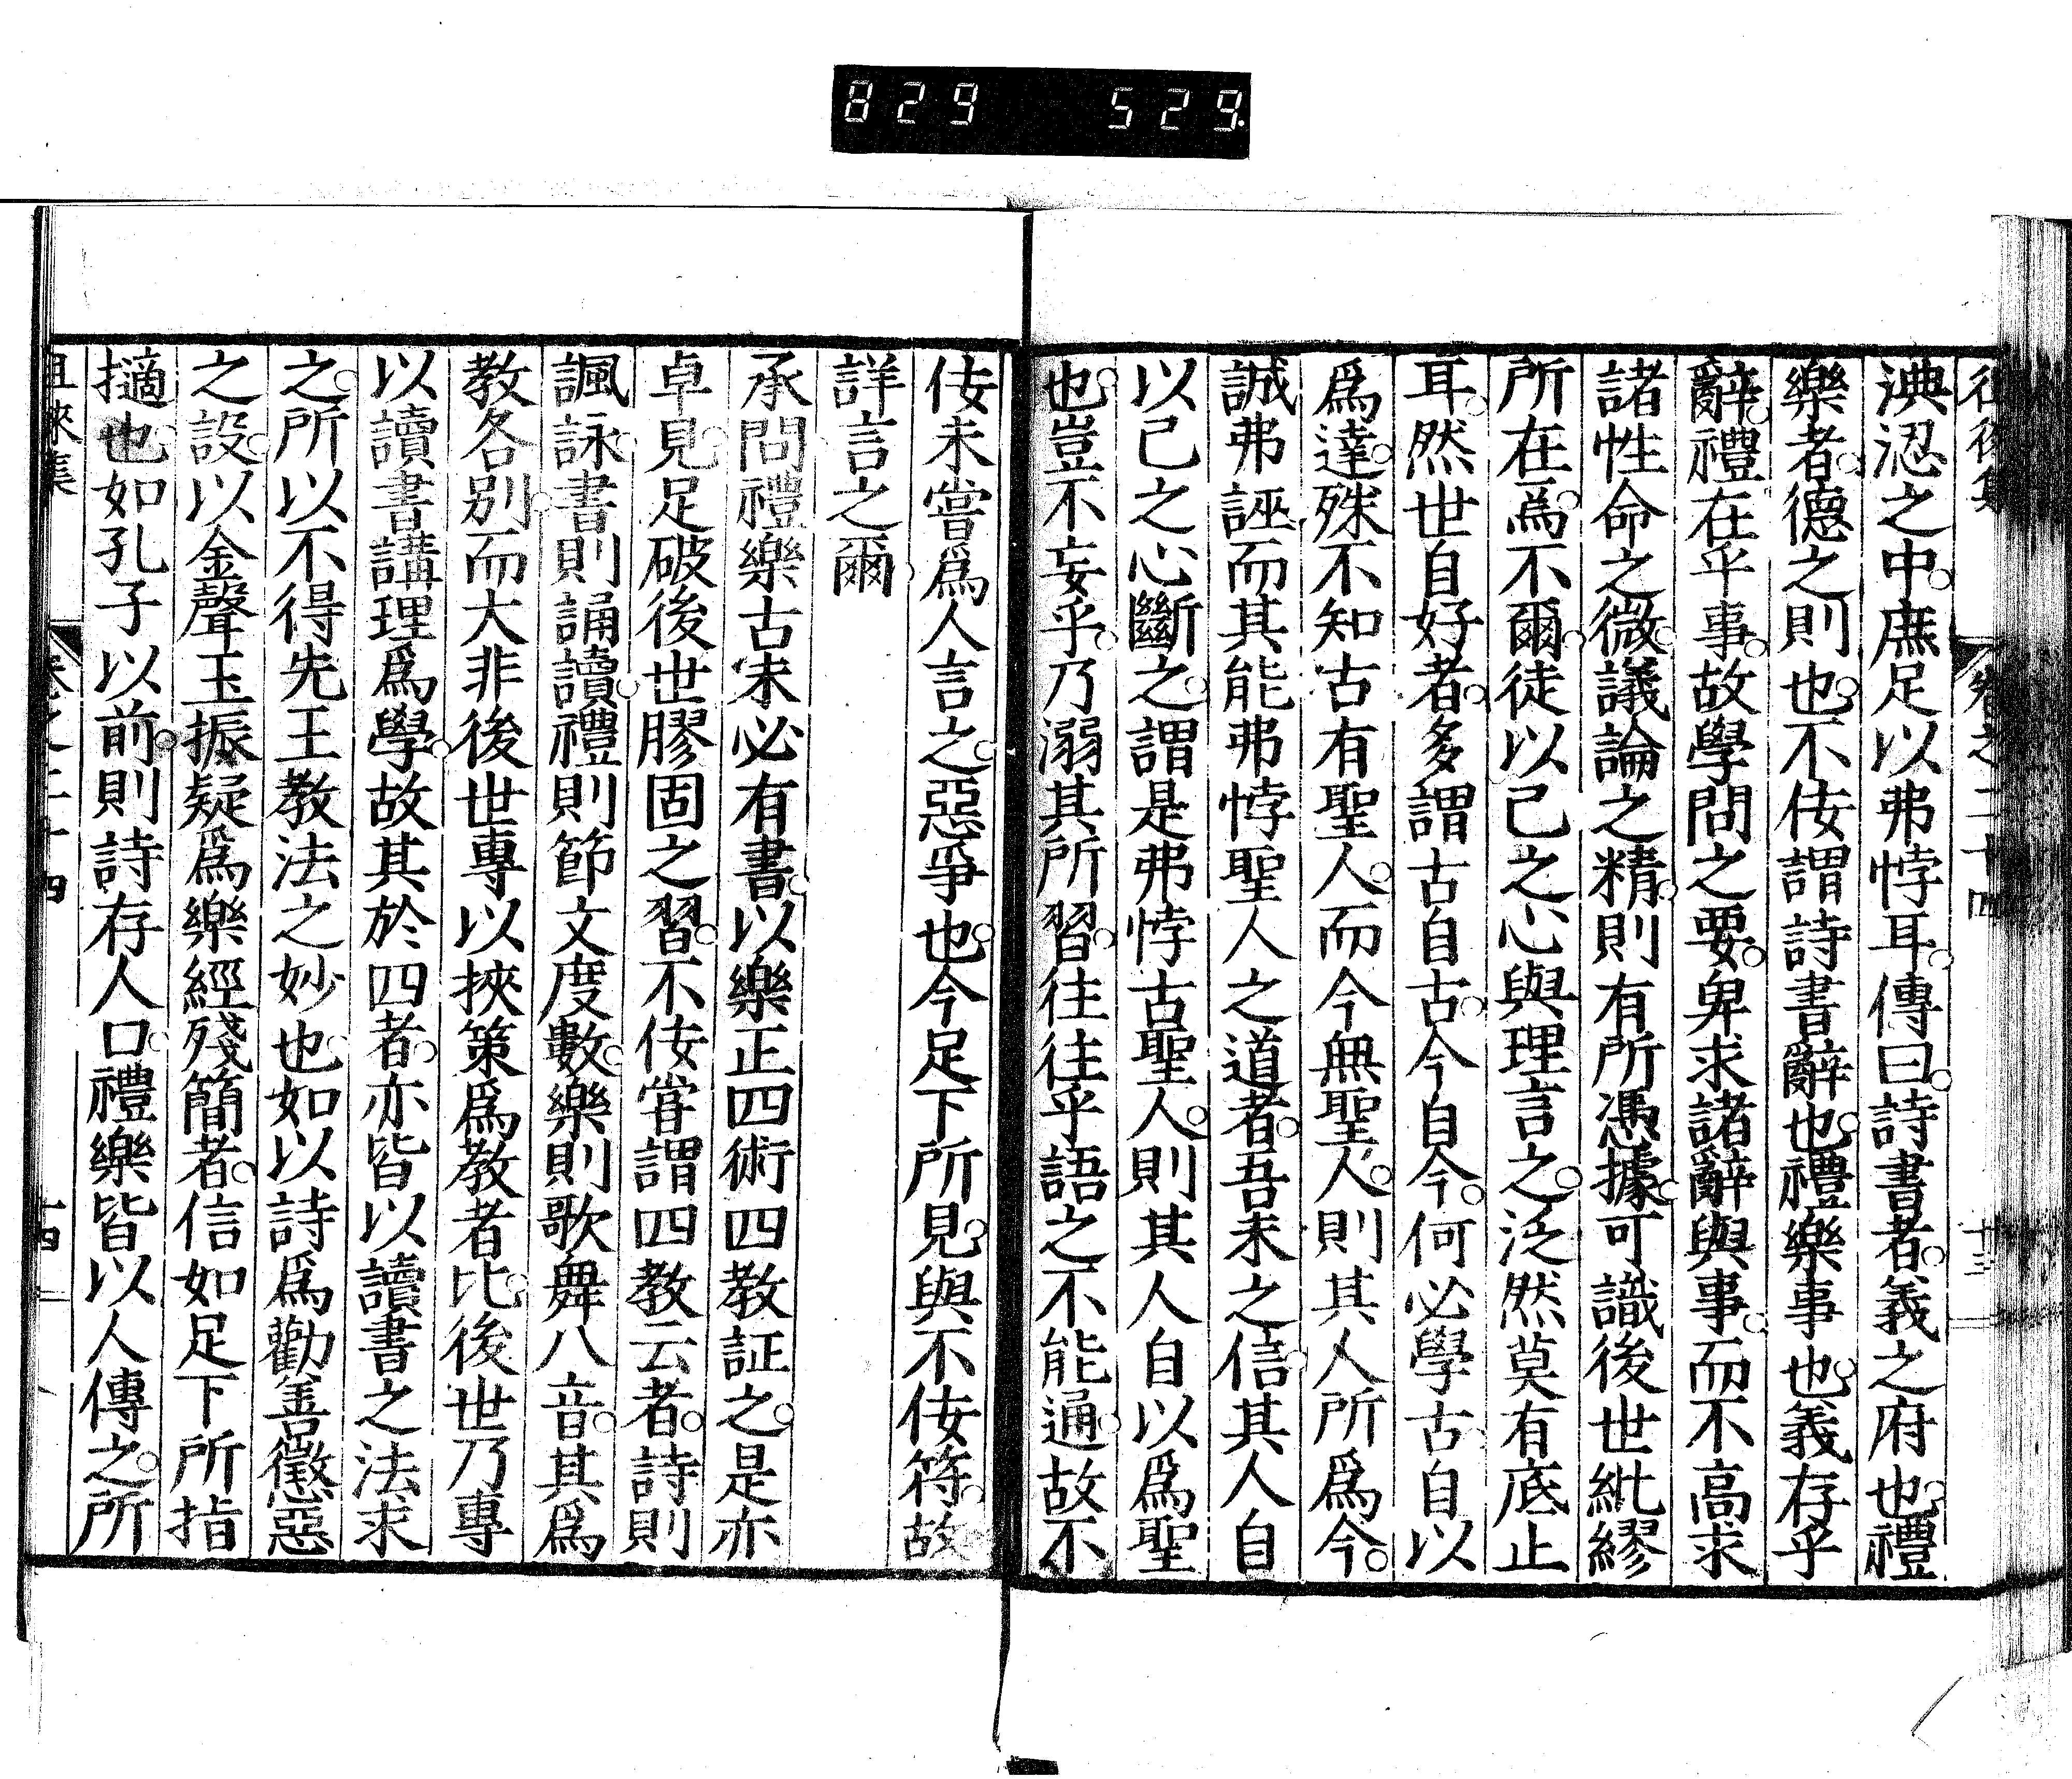 829 529
淟涊之中。庶足以弗悖耳。傳曰。詩書者。義之府也。禮
樂者。德之則也。不佞謂詩書辭也。禮樂事也。義存乎
辭。禮在乎事。故學問之要。卑求諸辭與事。而不高求
諸性命之微。議論之精。則有所憑據。可識後世紕繆
所在焉。不爾。徒以己之心與理言之。泛然莫有底止
耳。然世自好者。多謂古自古。今自今。何必學古。自以
爲達。殊不知古有聖人。而今無聖人。則其人所爲今。
誠弗誣而其能弗悖聖人之道者。吾未之信。其人自
以己之心斷之。謂是弗悖古聖人。則其人自以爲聖
也。豈不妄乎。乃溺其所習。往往乎語之不能通。故不
佞未嘗爲人言之。惡爭也。今足下所見。與不佞符。故
詳言之爾。
承問禮樂古未必有書。以樂正四術四教証之。是亦
卓見。足破後世膠固之習。不佞嘗謂四教云者。詩則
諷詠。書則誦讀。禮則節文度數。樂則歌舞八音。其爲
教各別。而大非後世專以挾策爲教者比。後世乃專
以讀書講理爲學。故其於四者。亦皆以讀書之法求
之。所以不得先王教法之妙也。如以詩爲勸善懲惡
之設。以金聲玉振疑爲樂經殘簡者。信如足下所指
擿也。如孔子以前。則詩存人口。禮樂皆以人傳之。所
徂徠集 卷之二十四 十四